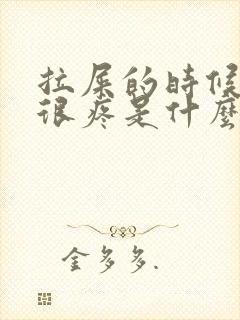 拉屎的時候
很疼是什麼
金多多.